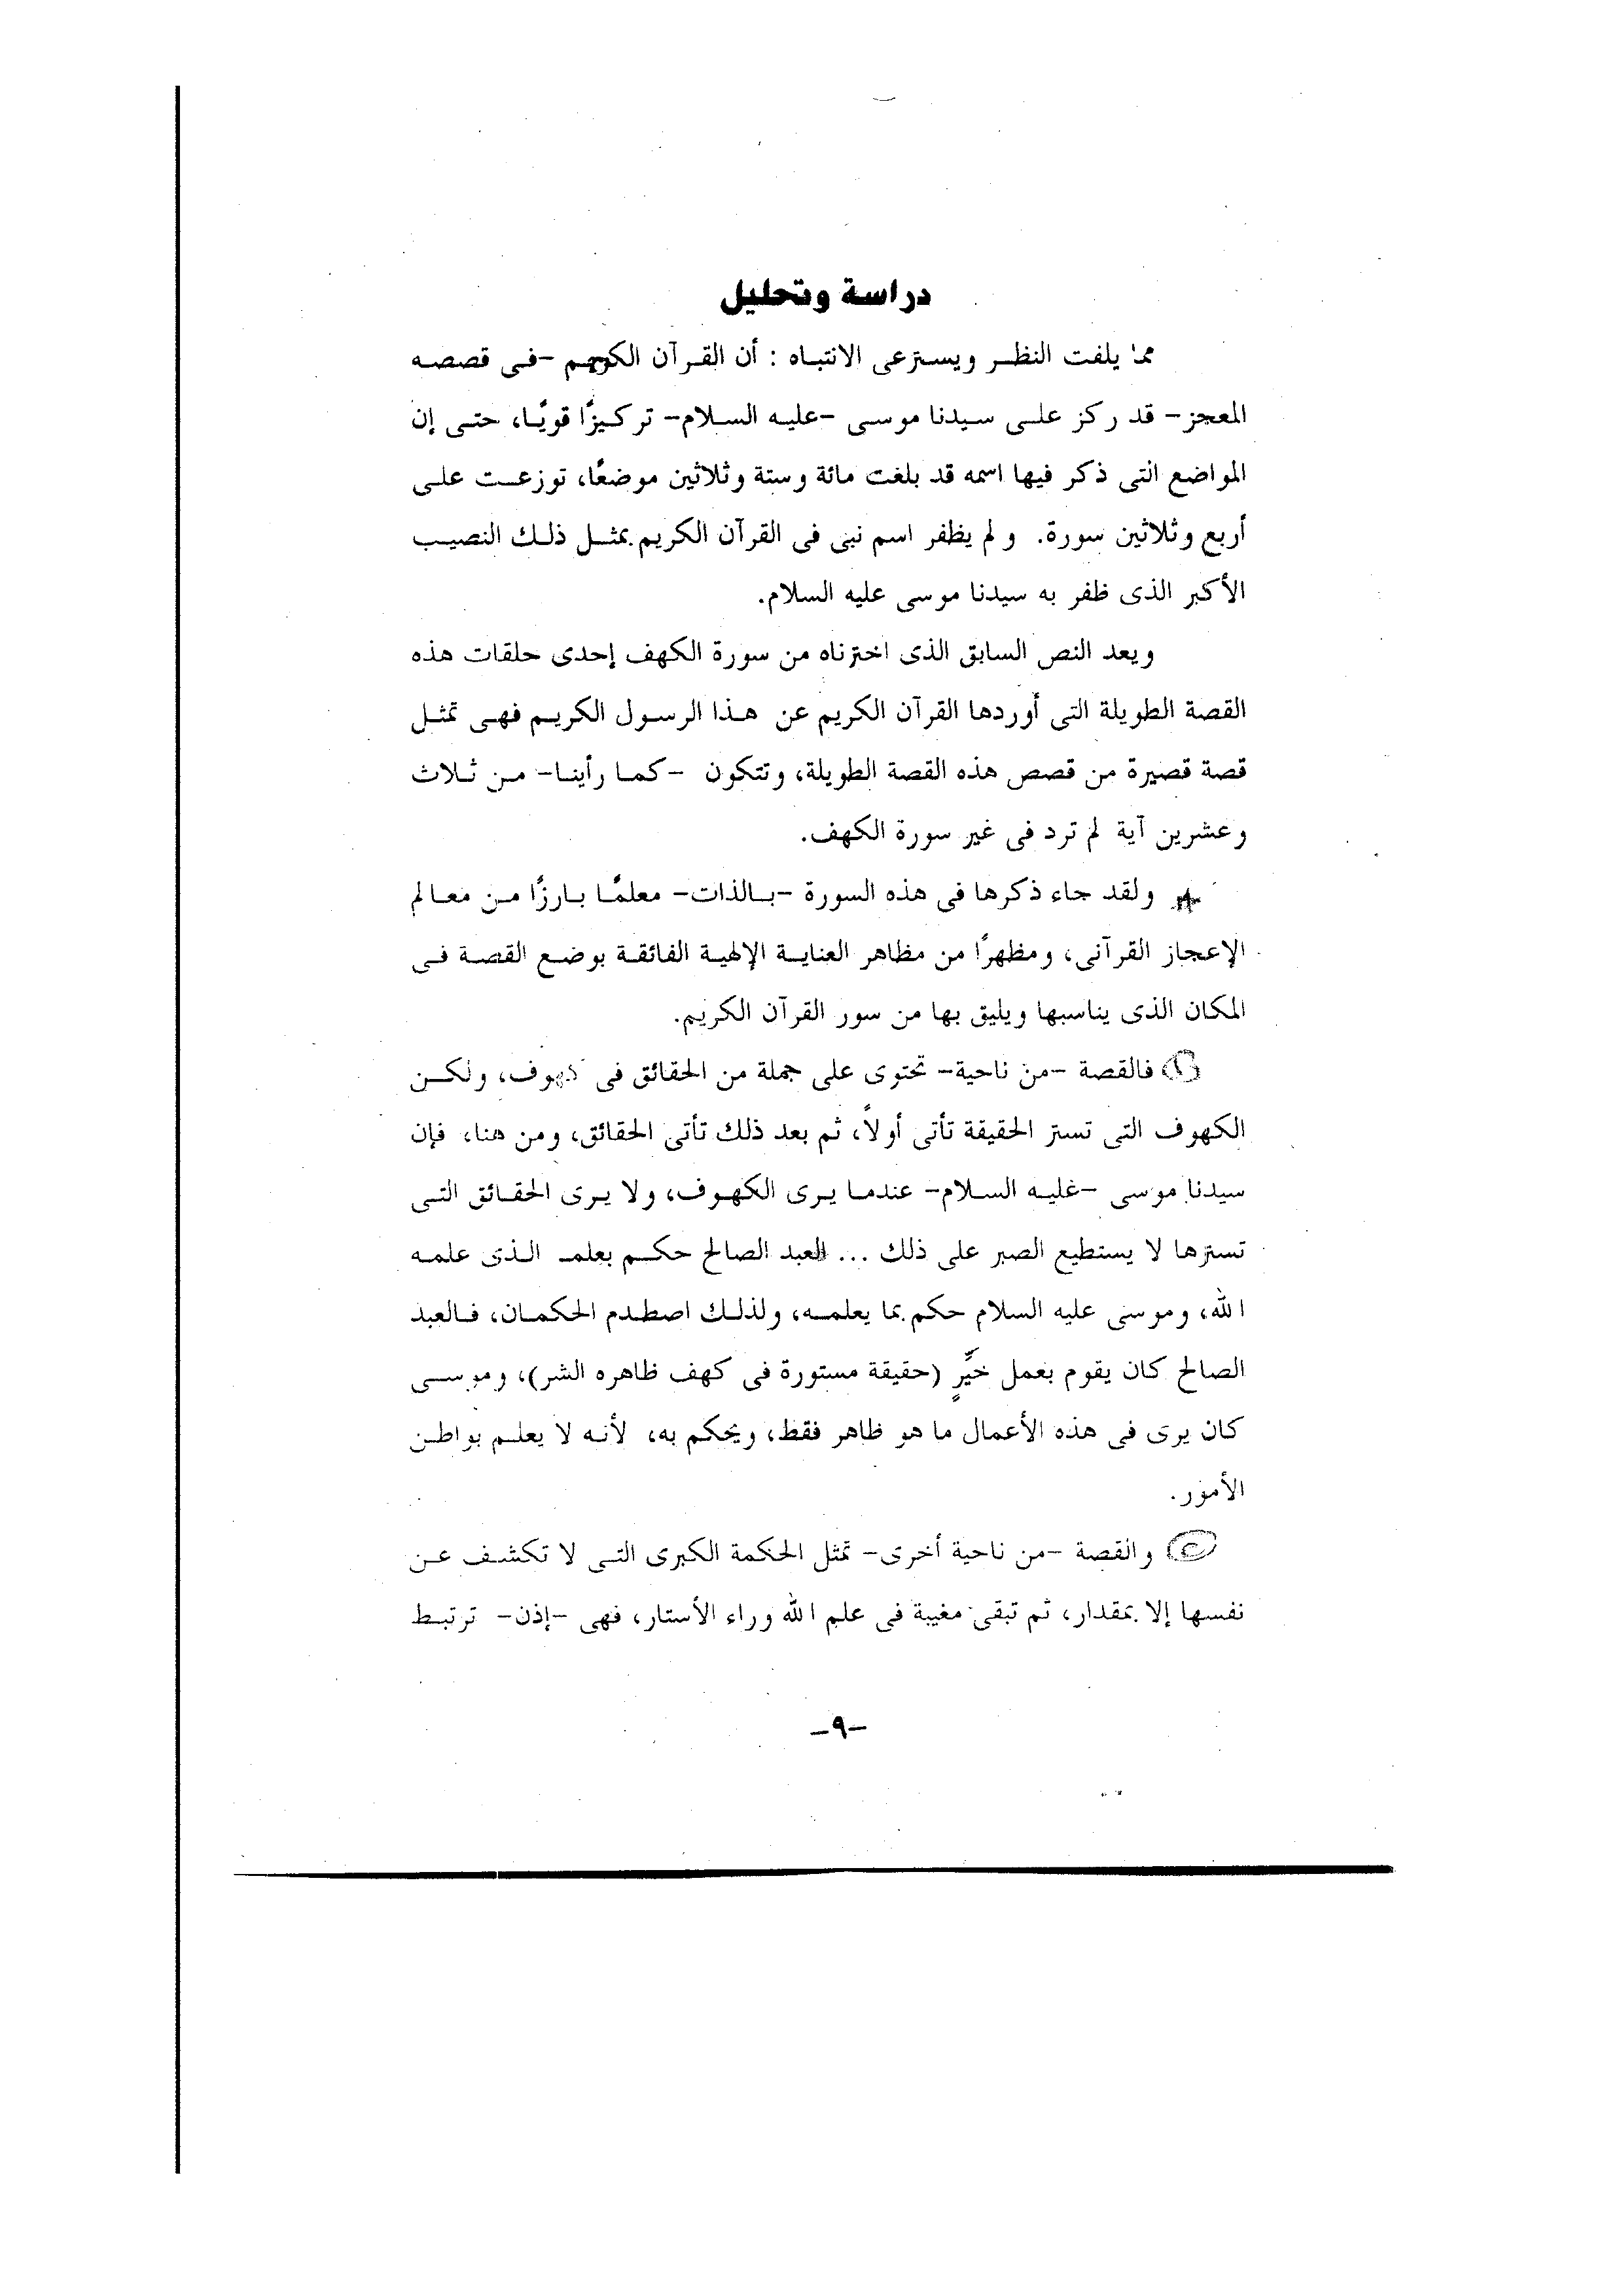 دراسة وتحليل
مما يلفت النظر ويسترعى الانتباه : أن القرآن الكريم -فى قصصه
المعجز- قد ركز على سيدنا موسى -عليه السلام- تركيزًا قويًا، حتى إن
المواضع التى ذكر فيها اسمه قد بلغت مائة وستة وثلاثين موضعًا، توزعت على
أربع وثلاثين سورة. ولم يظفر اسم نبى فى القرآن الكريم بمثل ذلك النصيب
الأكبر الذى ظفر به سيدنا موسى عليه السلام.
ويعد النص السابق الذى اخترناه من سورة الكهف إحدى حلقات هذه
القصة الطويلة التى أوردها القرآن الكريم عن هذا الرسول الكريم فهى تمثل
قصة قصيرة من قصص هذه القصة الطويلة، وتتكون -كما رأينا- من ثلاث
وعشرين آية لم ترد فى غير سورة الكهف.
* ولقد جاء ذكرها فى هذه السورة -بالذات- معلمًا بارزًا من معالم
الإعجاز القرآنى، ومظهرًا من مظاهر العناية الإلهية الفائقة بوضع القصة فى
المكان الذى يناسبها ويليق بها من سور القرآن الكريم.
(١) فالقصة -من ناحية- تحتوى على جملة من الحقائق فى كهوف، ولكن
الكهوف التى تستر الحقيقة تأتى أولاً، ثم بعد ذلك تأتى الحقائق، ومن هنا، فإن
سيدنا موسى -عليه السلام- عندما يرى الكهوف، ولا يرى الحقائق التى
تسترها لا يستطيع الصبر على ذلك ... العبد الصالح حكم بعلمه الذى علمه
الله، وموسى عليه السلام حكم بما يعلمه، ولذلك اصطدم الحكمان، فالعبد
الصالح كان يقوم بعمل خيِّرٍ (حقيقة مستورة فى كهف ظاهره الشر)، وموسى
كان يرى فى هذه الأعمال ما هو ظاهر فقط، ويحكم به، لأنه لا يعلم بواطن
الأمور.
(٢) والقصة -من ناحية أخرى- تمثل الحكمة الكبرى التى لا تكشف عن
نفسها إلا بمقدار، ثم تبقى مغيبة فى علم الله وراء الأستار، فهى -إذن- ترتبط
-٩-